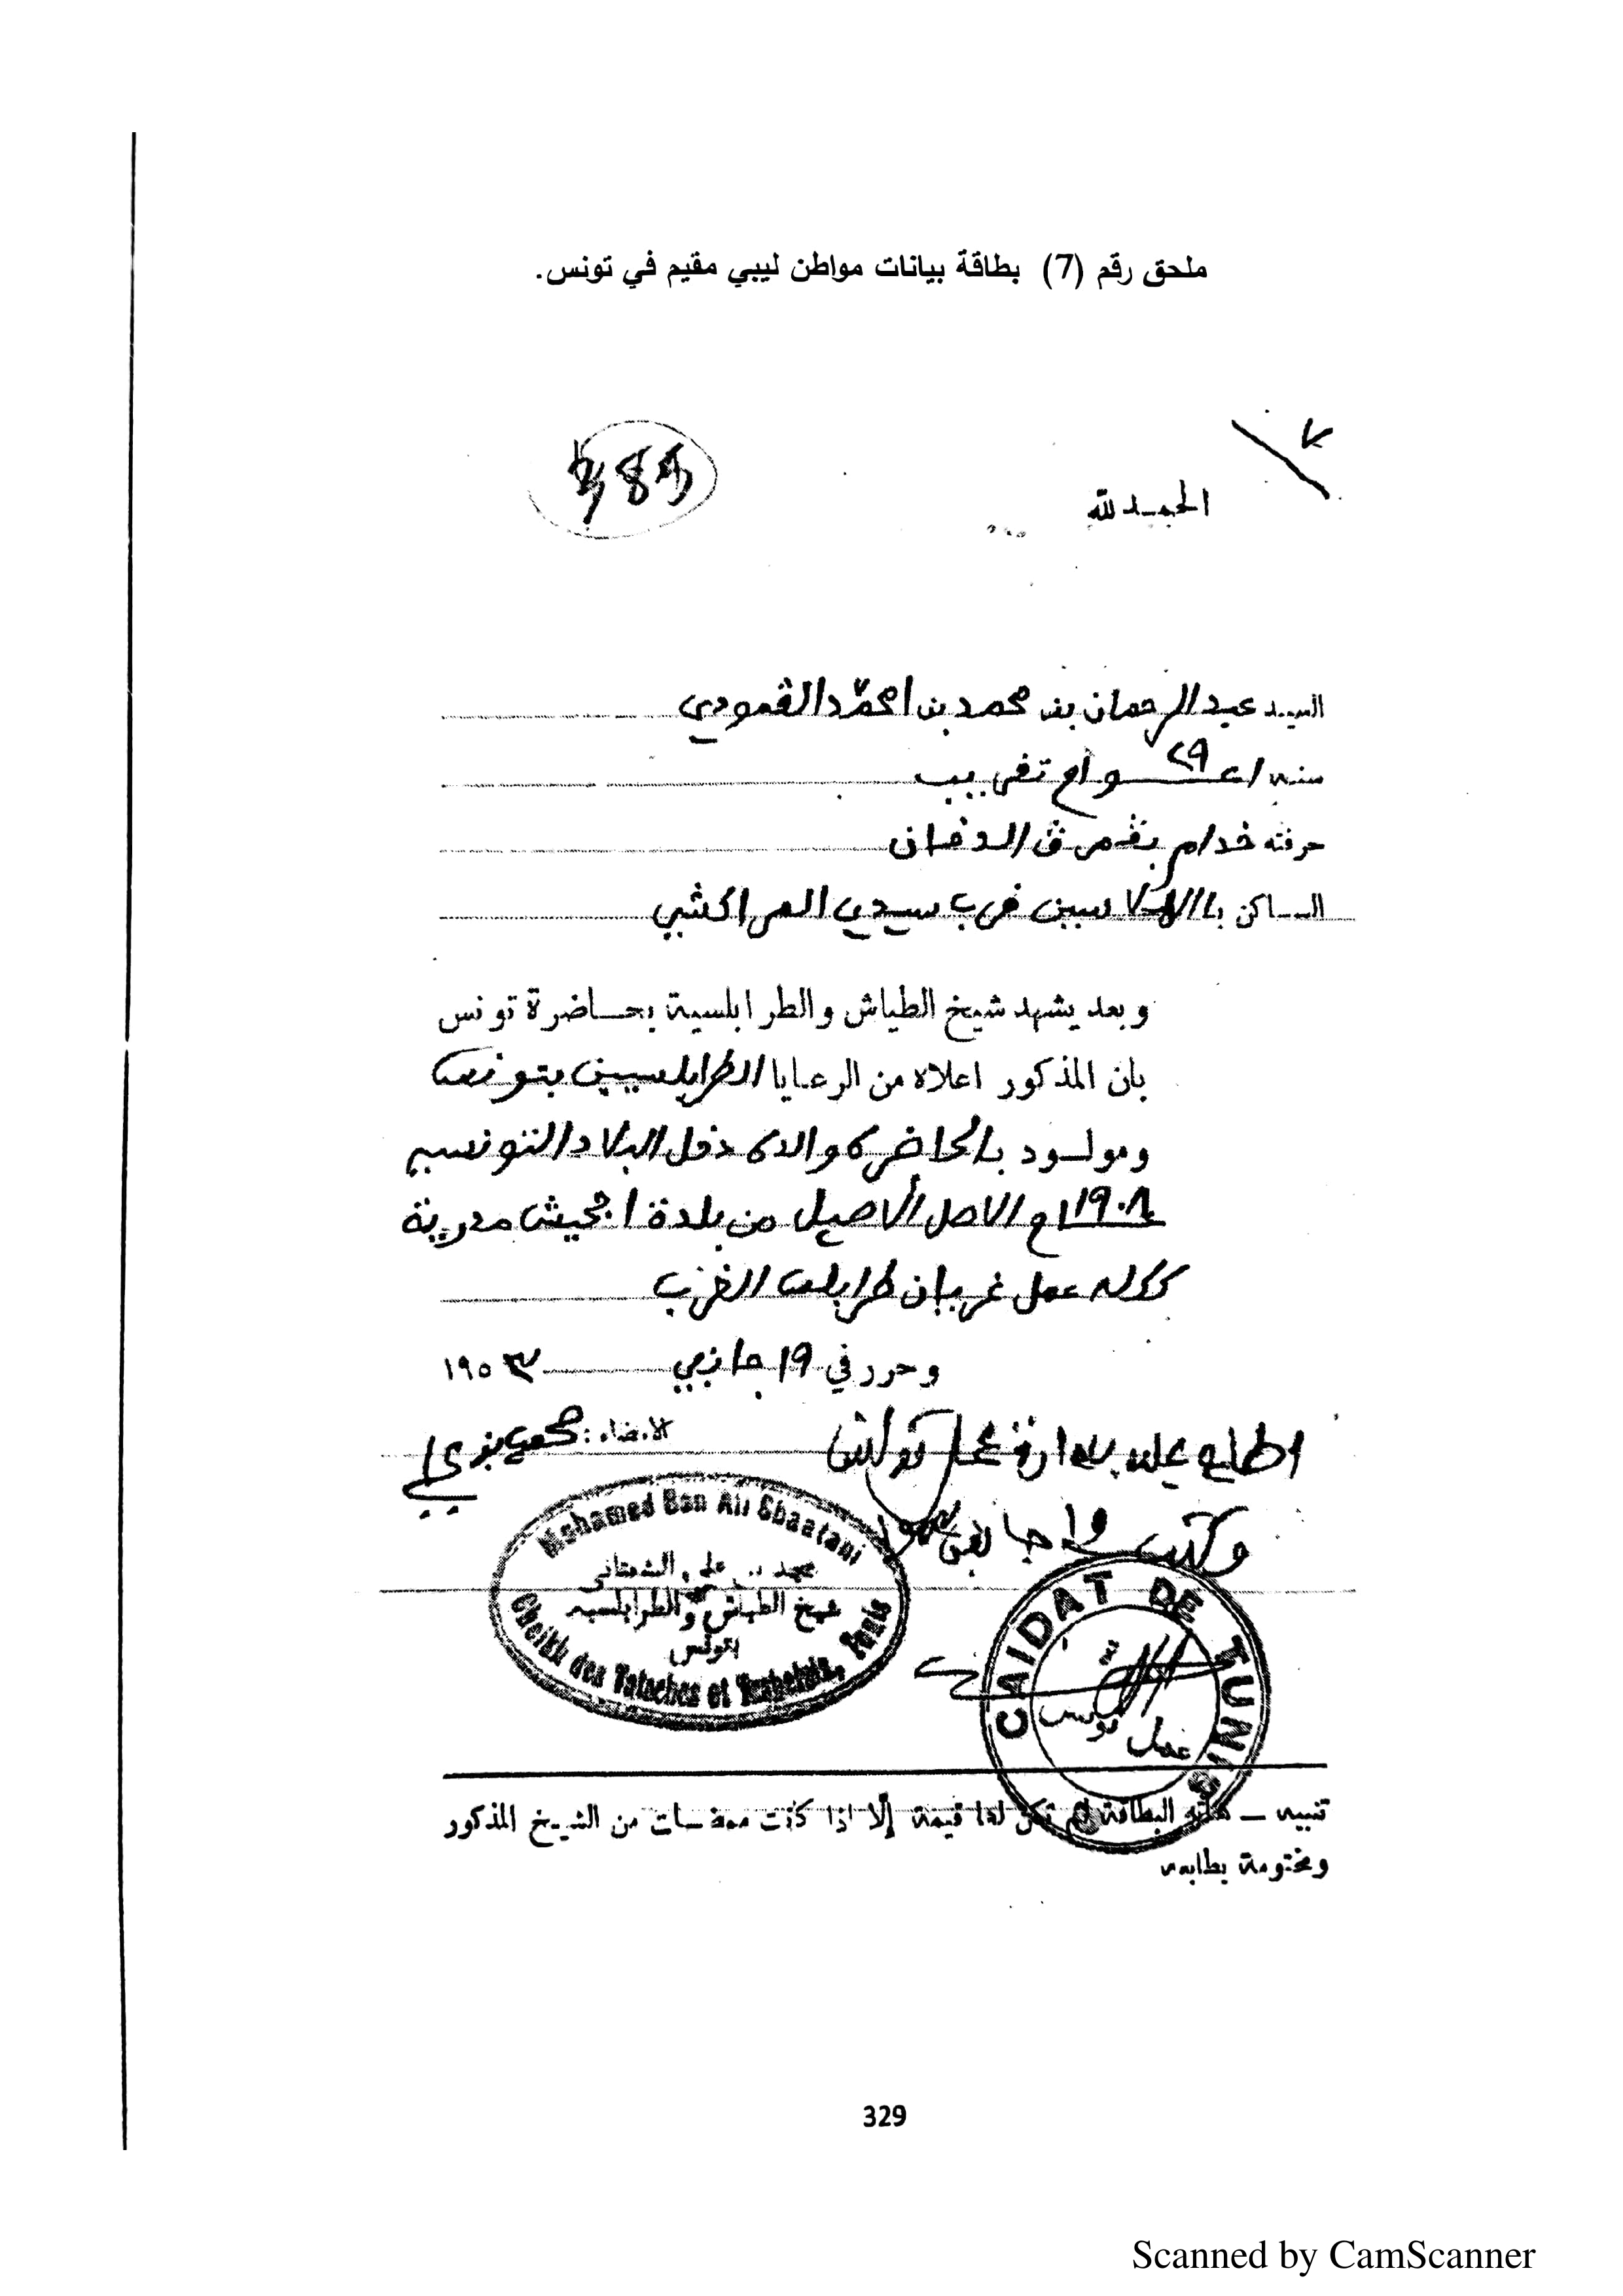 ملحق رقم (7) بطاقة بيانات مواطن ليبي مقيم في تونس.
الحمد لله
السيد عبد الرحمان بن محمد بن امحمد القمودي
سنه ٢٩ اعوام تقريب
حرفته خدام
الساكن قرب سيدي المراكشي
وبعد يشهد شيخ الطياش والطرابلسية بحاضرة تونس
بان المذكور اعلاه من الرعايا الطرابلسيين بتونس
ومولود بالحاضرة والده دخل البلاد التونسية
١٩٠٨ الاصل الأصيل من بلدة مديرية
ككله عمل غريان طرابلس الغرب
وحرر في ١٩ جانفي ١٩٥٣
الامضاء: محمد بن علي
اطلع عليه بادارة عمل تونس
وكتب في ١٩ جانفي
Mohamed Ben Ali Chaatani
محمد بن علي الشعتاني
شيخ الطياش والطرابلسية
بتونس
Cheikh des Tataches et , Tunis
CAIDAT DE TUNIS
عمل تونس
تنبيه — هاته البطاقة لم تكن لها قيمة إلّا اذا كانت ممضات من الشيخ المذكور
ومختومة بطابعه
329
Scanned by CamScanner